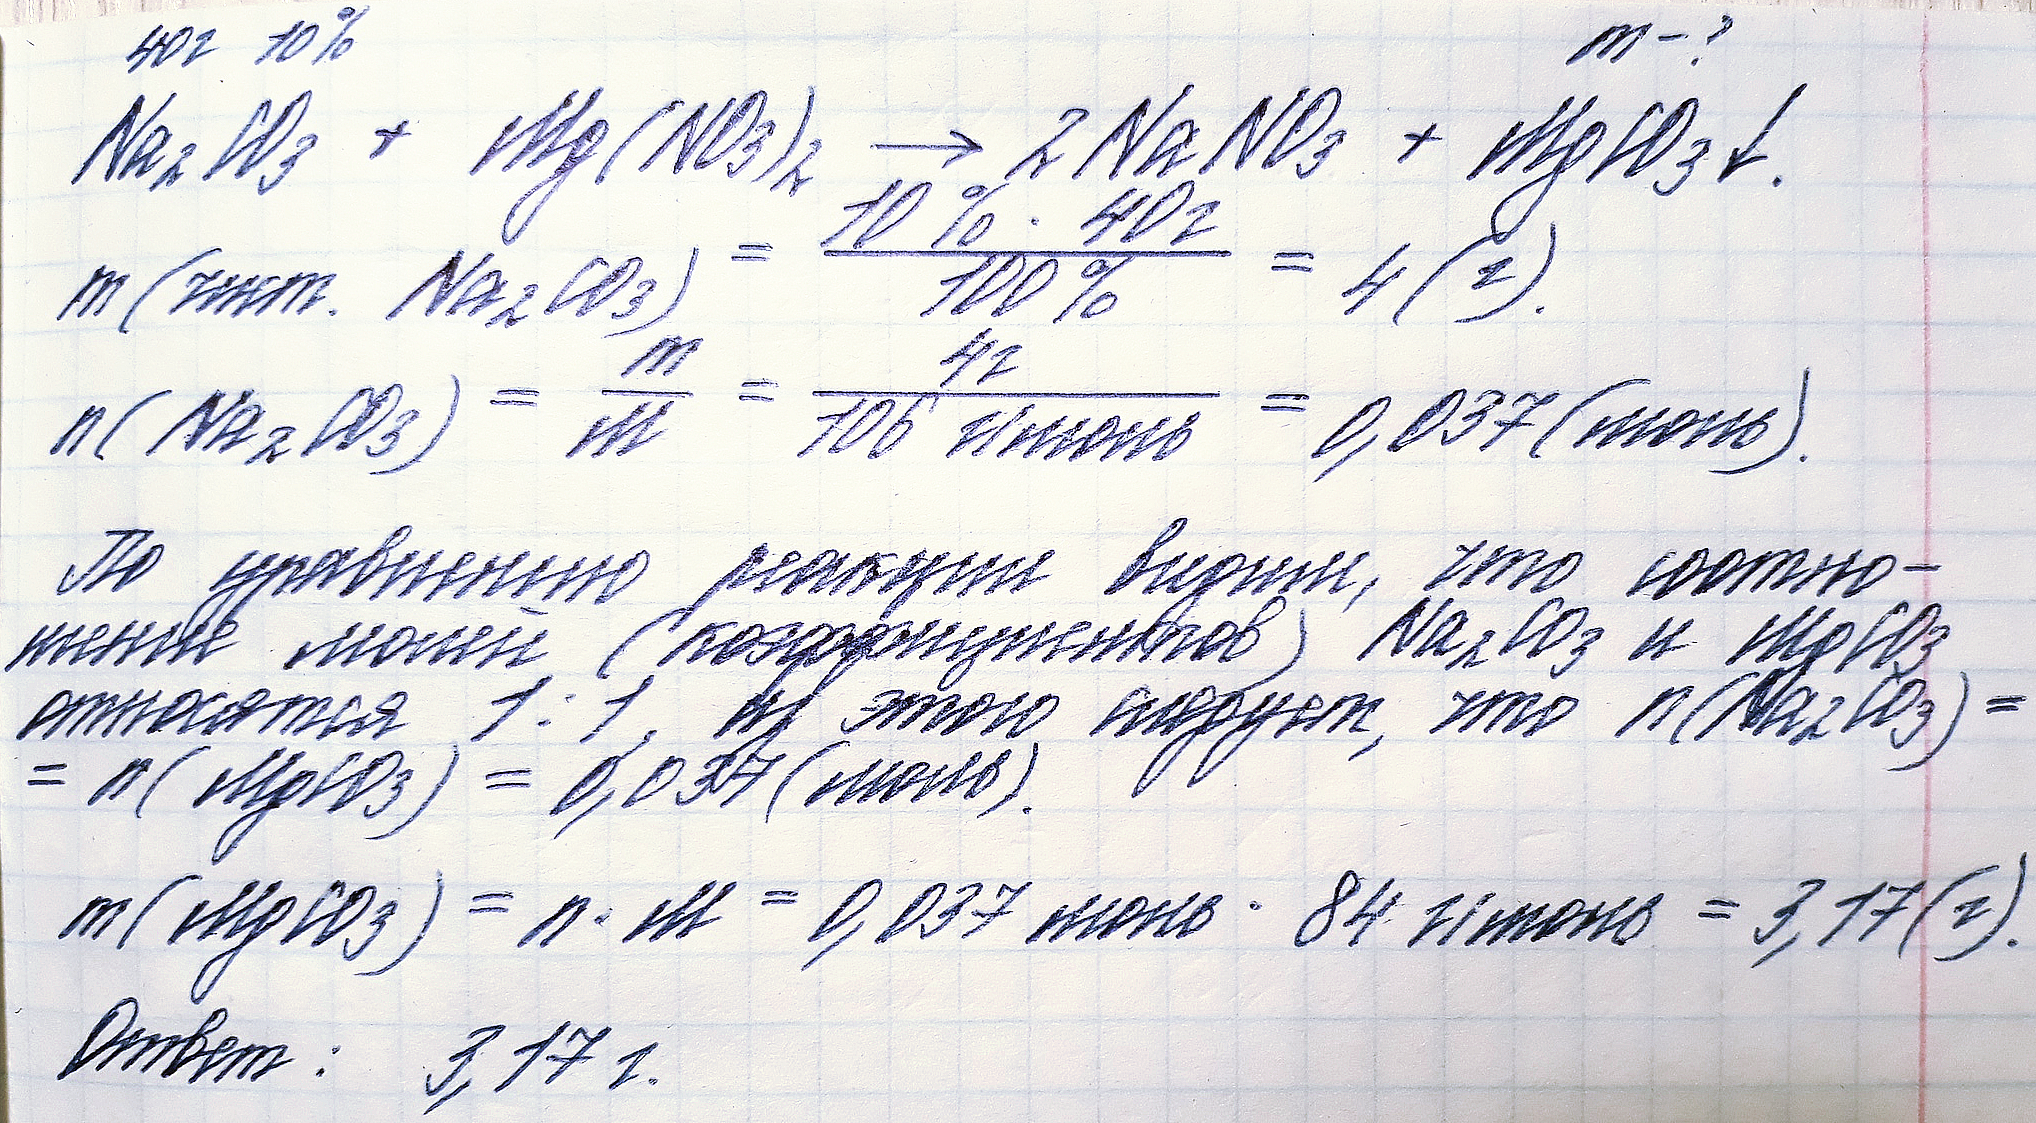 40г 10% m-?
Na₂CO₃ + Mg(NO₃)₂ → 2NaNO₃ + MgCO₃↓.
m(чист. Na₂CO₃) = 10% · 40г / 100% = 4(г).
n(Na₂CO₃) = m / M = 4г / 106 г/моль = 0,037(моль).
По уравнению реакции видим, что соотно-
шение молей (коэффициентов) Na₂CO₃ и MgCO₃
относятся 1:1, из этого следует, что n(Na₂CO₃) =
= n(MgCO₃) = 0,037(моль).
m(MgCO₃) = n · M = 0,037 моль · 84 г/моль = 3,17(г).
Ответ: 3,17 г.